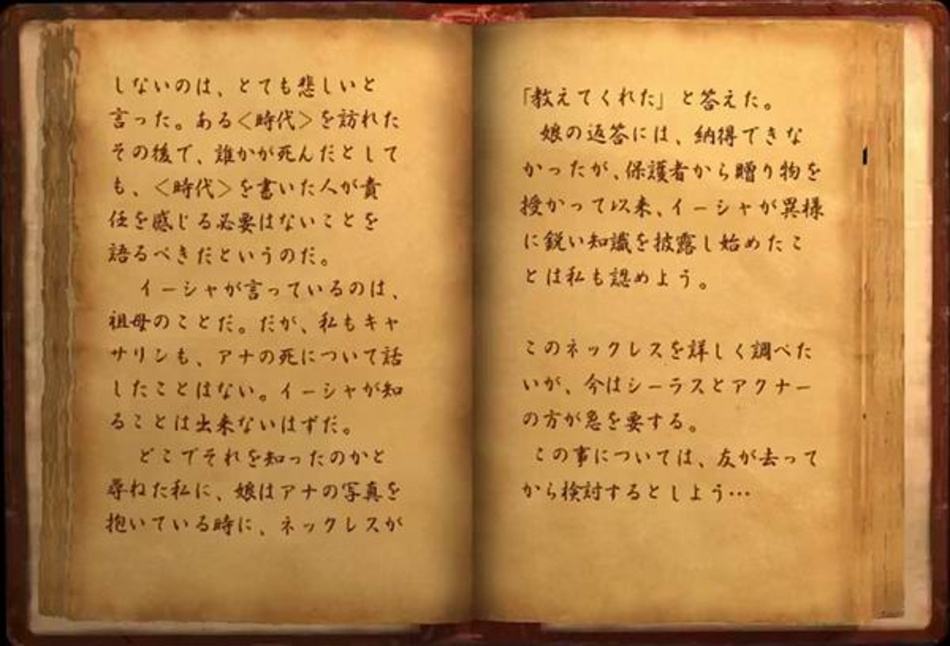 しないのは、とても悲しいと
言った。ある＜時代＞を訪れた
その後で、誰かが死んだとして
も、＜時代＞を書いた人が責
任を感じる必要はないことを
語るべきだというのだ。
イーシャが言っているのは、
祖母のことだ。だが、私もキャ
サリンも、アナの死について話
したことはない。イーシャが知
ることは出来ないはずだ。
どこでそれを知ったのかと
尋ねた私に、娘はアナの写真を
抱いている時に、ネックレスが
「教えてくれた」と答えた。
娘の返答には、納得できな
かったが、保護者から贈り物を
授かって以来、イーシャが異様
に鋭い知識を披露し始めたこ
とは私も認めよう。
このネックレスを詳しく調べた
いが、今はシーラスとアクナー
の方が急を要する。
この事については、友が去って
から検討するとしよう…